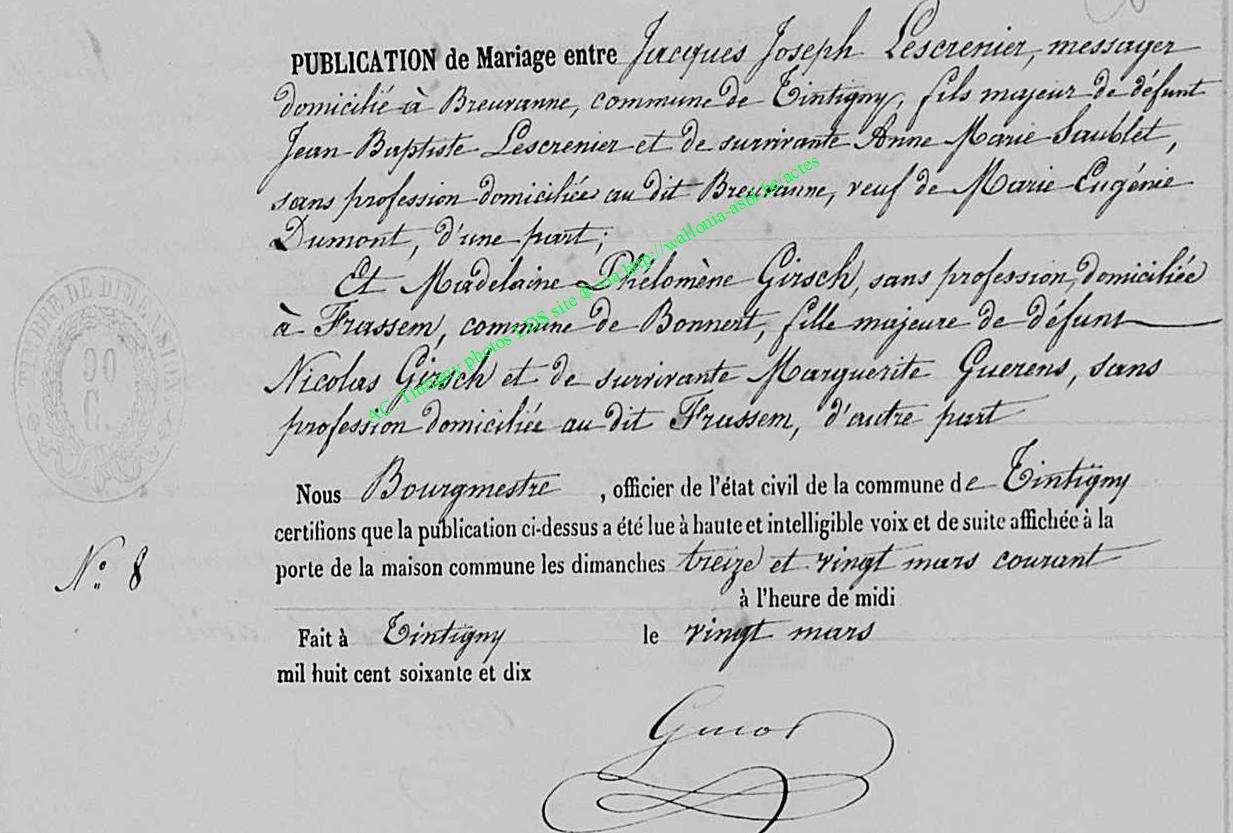 PUBLICATION de Mariage entre Jacques Joseph Lescrenier, messager
domicilié à Breuvanne, commune de Tintigny, fils majeur de défunt
Jean Baptiste Lescrenier et de survivante Anne Marie Saublet,
sans profession domiciliée au dit Breuvanne, veuf de Marie Eugénie
Dumont, d'une part;
Et Madelaine Phélomène Girsch, sans profession, domiciliée
à Frassem, commune de Bonnert, fille majeure de défunt
Nicolas Girsch et de survivante Marguerite Guerens, sans
profession domiciliée au dit Frassem, d'autre part
TIMBRE DE DIMENSION
90
C.
Nous Bourgmestre, officier de l'état civil de la commune de Tintigny
certifions que la publication ci-dessus a été lue à haute et intelligible voix et de suite affichée à la
N° 8
porte de la maison commune les dimanches treize et vingt mars courant
à l'heure de midi
Fait à Tintigny le vingt mars
mil huit cent soixante et dix
AC. Tintigny photos LDS site & via http://wallonia-asbl.be/actes